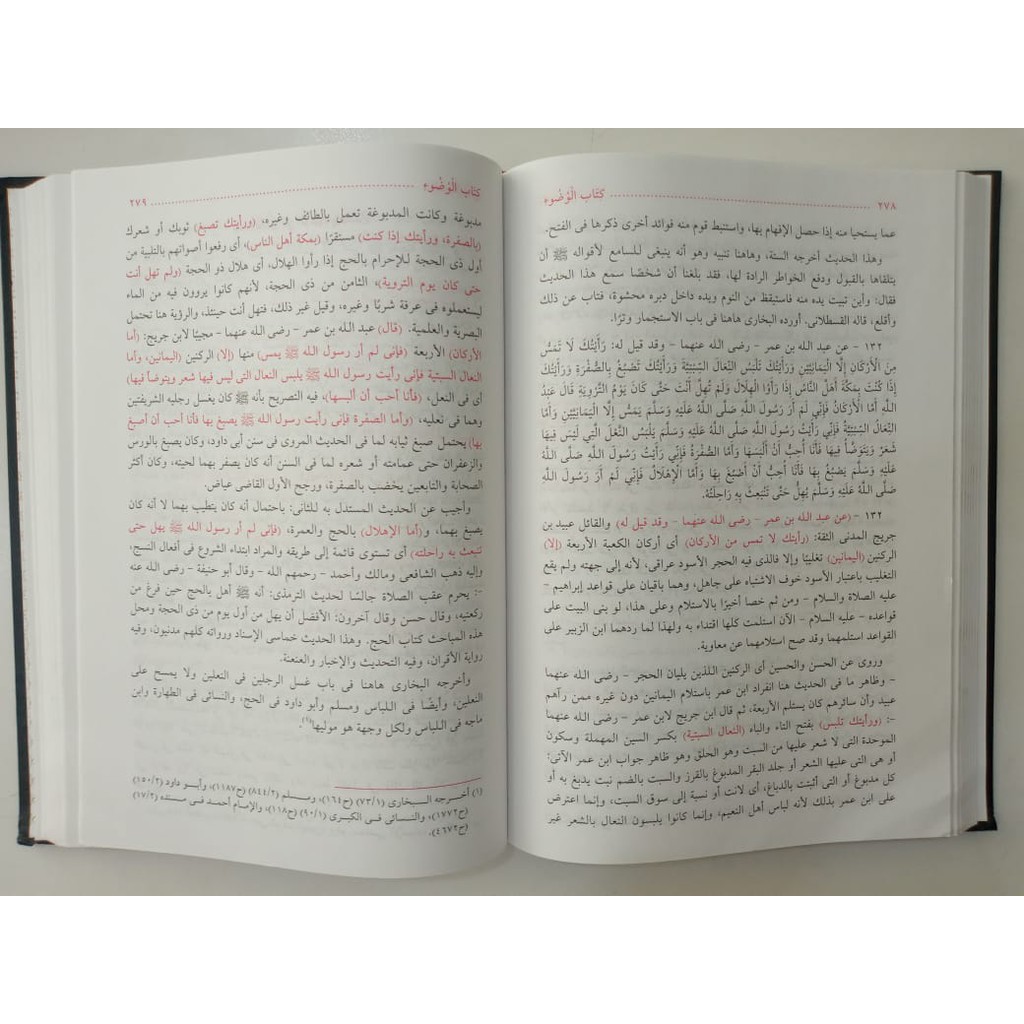 ٢٧٨ كتَاب الْوُضُوءِ
عما يستحيا منه إذا حصل الإفهام بها، واستنبط قوم منه فوائد أخرى ذكرها فى الفتح.
وهذا الحديث أخرجه الستة، وهاهنا تنبيه وهو أنه ينبغى للسامع لأقواله ﷺ أن
يتلقاها بالقبول ودفع الخواطر الرادة لها، فقد بلغنا أن شخصًا سمع هذا الحديث
فقال: وأين تبيت يده منه فاستيقظ من النوم ويده داخل دبره محشوة، فتاب عن ذلك
وأقلع، قاله القسطلانى. أورده البخارى هاهنا فى باب الاستجمار وترًا.
١٣٢ - عن عبد الله بن عمر - رضى الله عنهما - وقد قيل له: رَأَيْتُكَ لَا تَمَسُّ
مِنَ الْأَرْكَانِ إِلَّا الْيَمَانِيَّيْنِ وَرَأَيْتُكَ تَلْبَسُ النِّعَالَ السِّبْتِيَّةَ وَرَأَيْتُكَ تَصْبُغُ بِالصُّفْرَةِ وَرَأَيْتُكَ
إِذَا كُنْتَ بِمَكَّةَ أَهَلَّ النَّاسُ إِذَا رَأَوُا الْهِلَالَ وَلَمْ تُهِلَّ أَنْتَ حَتَّى كَانَ يَوْمُ التَّرْوِيَةِ قَالَ عَبْدُ
اللَّهِ أَمَّا الْأَرْكَانُ فَإِنِّي لَمْ أَرَ رَسُولَ اللَّهِ صَلَّى اللَّهُ عَلَيْهِ وَسَلَّمَ يَمَسُّ إِلَّا الْيَمَانِيَّيْنِ وَأَمَّا
النِّعَالُ السِّبْتِيَّةُ فَإِنِّي رَأَيْتُ رَسُولَ اللَّهِ صَلَّى اللَّهُ عَلَيْهِ وَسَلَّمَ يَلْبَسُ النَّعْلَ الَّتِي لَيْسَ فِيهَا
شَعَرٌ وَيَتَوَضَّأُ فِيهَا فَأَنَا أُحِبُّ أَنْ أَلْبَسَهَا وَأَمَّا الصُّفْرَةُ فَإِنِّي رَأَيْتُ رَسُولَ اللَّهِ صَلَّى اللَّهُ
عَلَيْهِ وَسَلَّمَ يَصْبُغُ بِهَا فَأَنَا أُحِبُّ أَنْ أَصْبُغَ بِهَا وَأَمَّا الْإِهْلَالُ فَإِنِّي لَمْ أَرَ رَسُولَ اللَّهِ
صَلَّى اللَّهُ عَلَيْهِ وَسَلَّمَ يُهِلُّ حَتَّى تَنْبَعِثَ بِهِ رَاحِلَتُهُ.
١٣٢ - (عن عبد الله بن عمر - رضى الله عنهما - وقد قيل له) والقائل عبيد بن
جريج المدنى الثقة: (رأيتك لا تمس من الأركان) أى أركان الكعبة الأربعة (إلا)
الركنين (اليمانين) تغليبًا وإلا فالذى فيه الحجر الأسود عراقى، لأنه إلى جهته ولم يقع
التغليب باعتبار الأسود خوف الاشتباه على جاهل، وهما باقيان على قواعد إبراهيم -
عليه الصلاة والسلام - ومن ثم خصا أخيرًا بالاستلام وعلى هذا، لو بنى البيت على
قواعده - عليه السلام - الآن استلمت كلها اقتداء به ولهذا لما ردهما ابن الزبير على
القواعد استلمهما وقد صح استلامهما عن معاوية.
وروى عن الحسن والحسين أى الركنين اللذين يليان الحجر - رضى الله عنهما
- وظاهر ما فى الحديث هنا انفراد ابن عمر باستلام اليمانين دون غيره ممن رآهم
عبيد وأن سائرهم كان يستلم الأربعة، ثم قال ابن جريج لابن عمر - رضى الله عنهما
-: (ورأيتك تلبس) بفتح التاء والباء (النعال السبتية) بكسر السين المهملة وسكون
الموحدة التى لا شعر عليها من السبت وهو الحلق وهو ظاهر جواب ابن عمر الآتى:
أو هى التى عليها الشعر أو جلد البقر المدبوغ بالقرز والسبت بالضم نبت يدبغ به أو
كل مدبوغ أو التى أثبتت بالدباغ، أى لانت أو نسبة إلى سوق السبت، وإنما اعترض
على ابن عمر بذلك لأنه لباس أهل النعيم، وإنما كانوا يلبسون النعال بالشعر غير
كتَاب الْوُضُوءِ ٢٧٩
مدبوغة وكانت المدبوغة تعمل بالطائف وغيره، (ورأيتك تصبغ) ثوبك أو شعرك
(بالصفرة، ورأيتك إذا كنت) مستقرًا (بمكة أهل الناس)، أى رفعوا أصواتهم بالتلبية من
أول ذى الحجة للإحرام بالحج إذا رأوا الهلال، أى هلال ذو الحجة (ولم تهل أنت
حتى كان يوم التروية)، الثامن من ذى الحجة، لأنهم كانوا يروون فيه من الماء
ليستعملوه فى عرفة شربًا وغيره، وقيل غير ذلك، فتهل أنت حينئذ، والرؤية هنا تحتمل
البصرية والعلمية. (قال) عبد الله بن عمر - رضى الله عنهما - مجيبًا لابن جريج: (أما
الأركان) الأربعة (فإنى لم أر رسول الله ﷺ يمس) منها (إلا) الركنين (اليمانين، وأما
النعال السبتية فإنى رأيت رسول الله ﷺ يلبس النعال التى ليس فيها شعر ويتوضأ فيها)
أى فى النعل، (فأنا أحب أن ألبسها)، فيه التصريح بأنه ﷺ كان يغسل رجليه الشريفتين
وهما فى نعليه، (وأما الصفرة فإنى رأيت رسول الله ﷺ يصبغ بها فأنا أحب أن أصبغ
بها) يحتمل صبغ ثيابه لما فى الحديث المروى فى سنن أبى داود، وكان يصبغ بالورس
والزعفران حتى عمامته أو شعره لما فى السنن أنه كان يصفر بهما لحيته، وكان أكثر
الصحابة والتابعين يخضب بالصفرة، ورجح الأول القاضى عياض.
وأجيب عن الحديث المستدل به للثانى: باحتمال أنه كان يتطيب بهما لا أنه كان
يصبغ بهما، و(أما الإهلال) بالحج والعمرة، (فإنى لم أر رسول الله ﷺ يهل حتى
تنبعث به راحلته) أى تستوى قائمة إلى طريقه والمراد ابتداء الشروع فى أفعال النسج،
وإليه ذهب الشافعى ومالك وأحمد - رحمهم الله - وقال أبو حنيفة - رضى الله عنه
-: يحرم عقب الصلاة جالسًا لحديث الترمذى: أنه ﷺ أهل بالحج حين فرغ من
ركعتيه، وقال حسن وقال آخرون: الأفضل أن يهل من أول يوم من ذى الحجة ومحل
هذه المباحث كتاب الحج. وهذا الحديث خماسى الإسناد ورواته كلهم مدنيون، وفيه
رواية الأقران، وفيه التحديث والإخبار والعنعنة.
وأخرجه البخارى هاهنا فى باب غسل الرجلين فى النعلين ولا يمسح على
النعلين، وأيضًا فى اللباس ومسلم وأبو داود فى الحج، والنسائى فى الطهارة وابن
ماجه فى اللباس ولكل وجهة هو موليها(١).
(١) أخرجه البخارى (٧٣/١) (ح١٦٤)، ومسلم (٨٤٤/٢) (ح١١٨٧)، وأبو داود (١٥٠/٢)
(ح١٧٧٢)، والنسائى فى الكبرى (٩٠/١) (ح١١٨)، والإمام أحمد فى مسنده (١٧/٢)
(ح٤٦٧٢).